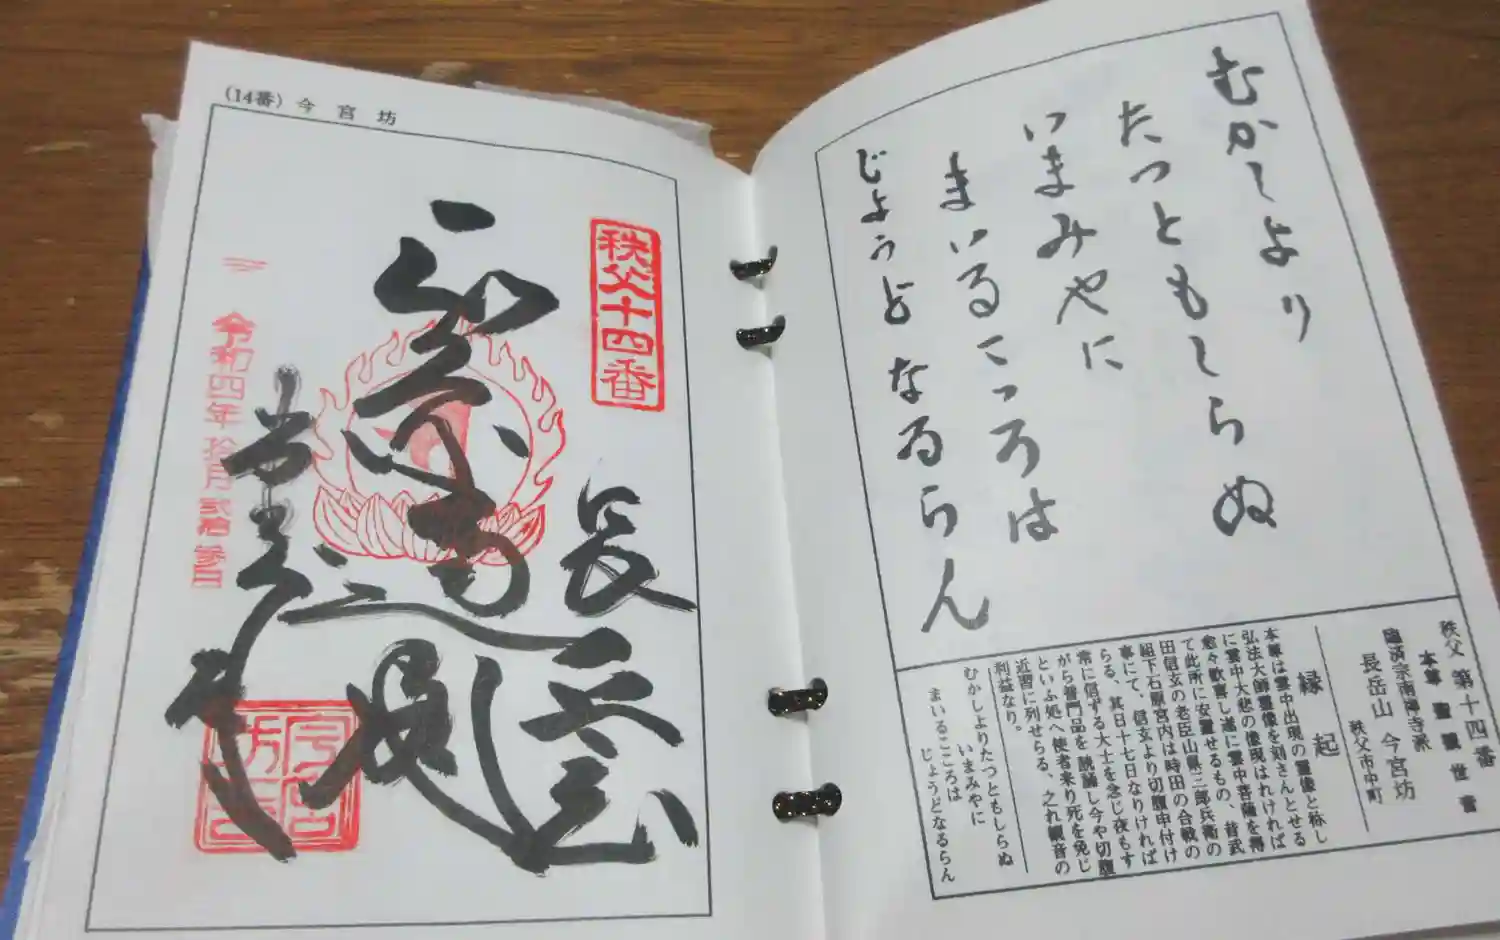 むかしより
たつともしらぬ
いまみやに
まいるこころは
じょうどなるらん
秩父 第十四番
本尊 聖観世音
臨済宗南禅寺派
長岳山 今宮坊
秩父市中町
縁起
本尊は雲中出現の霊像と称し
弘法大師霊像を刻さんとせる
に雲中大悲の像現はれければ
愈々歓喜し遂に雲中菩薩を得
て此所に安置せるもの、昔武
田信玄の老臣山県三郎兵衛の
組下石原宮内は時田の合戦の
事にて、信玄より切腹申付け
らる、其日十七日なりければ
常に信ずる大士を念じ夜もす
がら普門品を読誦し今や切腹
といふ処へ使者来り死を免じ
近習に列せらる、之れ観音の
利益なり。
むかしよりたつともしらぬ
いまみやに
まいるこころは
じょうどなるらん
(14番) 今宮坊
秩父十四番
長岳
令和四年拾月弐拾参日
今宮坊